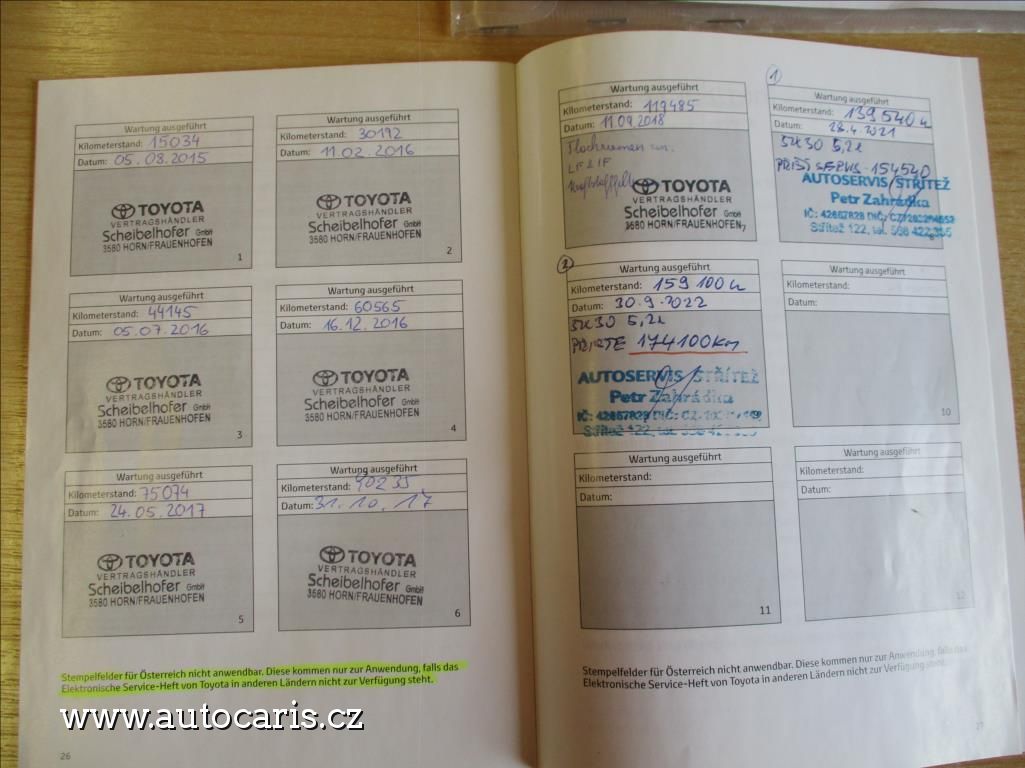 Wartung ausgeführt
Kilometerstand: 15034
Datum: 05.08.2015
TOYOTA
VERTRAGSHÄNDLER
Scheibelhofer GmbH
3580 HORN/FRAUENHOFEN
1
Wartung ausgeführt
Kilometerstand: 30192
Datum: 11.02.2016
TOYOTA
VERTRAGSHÄNDLER
Scheibelhofer GmbH
3580 HORN/FRAUENHOFEN
2
Wartung ausgeführt
Kilometerstand: 44145
Datum: 05.07.2016
TOYOTA
VERTRAGSHÄNDLER
Scheibelhofer GmbH
3580 HORN/FRAUENHOFEN
3
Wartung ausgeführt
Kilometerstand: 60565
Datum: 16.12.2016
TOYOTA
VERTRAGSHÄNDLER
Scheibelhofer GmbH
3580 HORN/FRAUENHOFEN
4
Wartung ausgeführt
Kilometerstand: 75074
Datum: 24.05.2017
TOYOTA
VERTRAGSHÄNDLER
Scheibelhofer GmbH
3580 HORN/FRAUENHOFEN
5
Wartung ausgeführt
Kilometerstand: 90233
Datum: 31.10.17
TOYOTA
VERTRAGSHÄNDLER
Scheibelhofer GmbH
3580 HORN/FRAUENHOFEN
6
Stempelfelder für Österreich nicht anwendbar. Diese kommen nur zur Anwendung, falls das
Elektronische Service-Heft von Toyota in anderen Ländern nicht zur Verfügung steht.
www.autocaris.cz
26
Wartung ausgeführt
Kilometerstand: 119485
Datum: 11.09.2018
TOYOTA
VERTRAGSHÄNDLER
Scheibelhofer GmbH
3580 HORN/FRAUENHOFEN
7
1
Wartung ausgeführt
Kilometerstand: 139540
Datum: 28.4.2021
5W30 5,2l
PŘÍŠTÍ SERVIS 154540
AUTOSERVIS STŘÍTEŽ
Petr Zahrádka
Střítež 122, tel.
2
Wartung ausgeführt
Kilometerstand: 159100
Datum: 30.9.2022
5W30 5,2l
174100km
AUTOSERVIS STŘÍTEŽ
Petr Zahrádka
Střítež 122, tel.
Wartung ausgeführt
Kilometerstand:
Datum:
10
Wartung ausgeführt
Kilometerstand:
Datum:
11
Wartung ausgeführt
Kilometerstand:
Datum:
12
Stempelfelder für Österreich nicht anwendbar. Diese kommen nur zur Anwendung, falls das
Elektronische Service-Heft von Toyota in anderen Ländern nicht zur Verfügung steht.
27